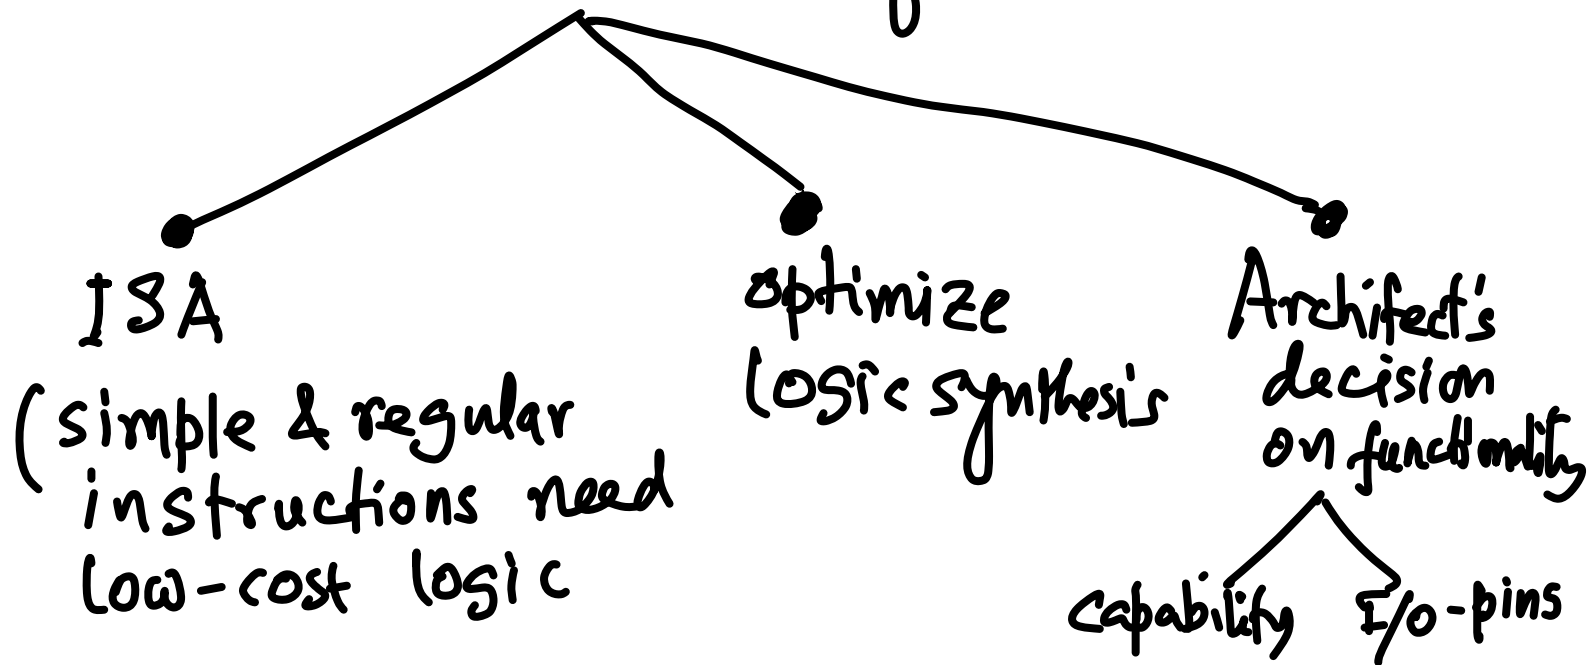 ISA
(simple & regular
instructions need
low-cost logic
optimize
logic synthesis
Architect's
decision
on functionality
capability
I/o-pins